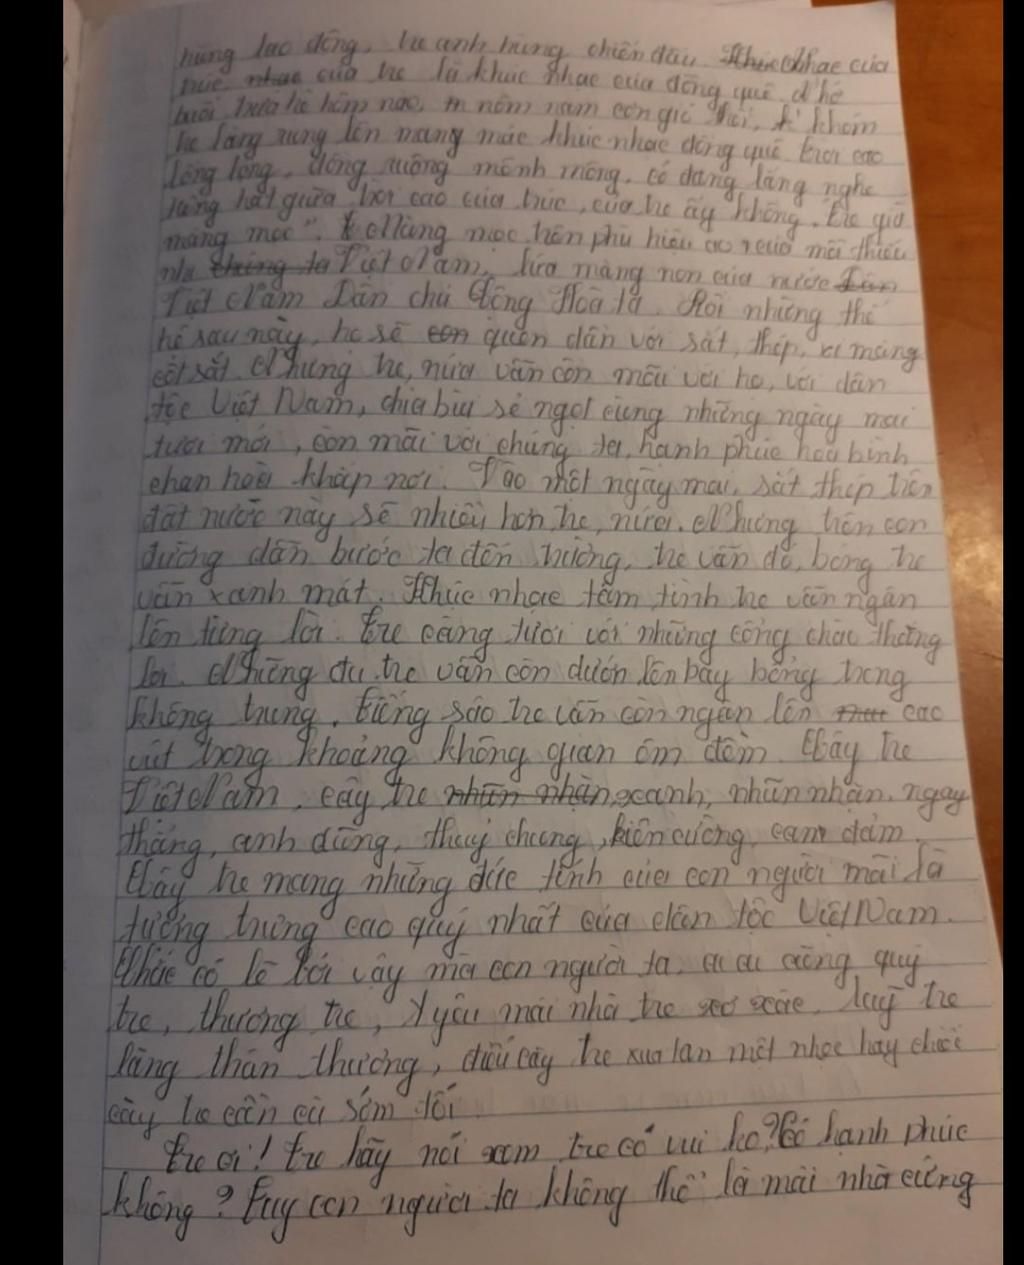 hùng lao động, tre anh hùng chiến đấu. Khúc nhạc của
trúc, nhạc của tre là khúc nhạc của đồng quê. nhớ
buổi trưa hè hôm nào, nồm nam cơn gió thổi, khóm
tre làng rung lên man mác khúc nhạc đồng quê. Trời cao
lồng lộng, đồng ruộng mênh mông, có đang lắng nghe
tiếng hát giữa trời cao của trúc, của tre ấy không. Tre già
măng mọc". Măng mọc trên phù hiệu áo mỗi thiếu
nhi Việt Nam, lứa măng non của nước
Việt Nam Dân chủ Cộng Hoà ta. Rồi những thế
hệ sau này, họ sẽ quen dần với sắt, thép, xi măng
cốt sắt. Nhưng tre, nứa vẫn còn mãi với họ, với dân
tộc Việt Nam, chia bùi sẻ ngọt cùng những ngày mai
tươi mới, còn mãi với chúng ta, hạnh phúc hoà bình
chan hoà khắp nơi. Vào một ngày mai, sắt thép trên
đất nước này sẽ nhiều hơn tre, nứa. Nhưng trên con
đường dẫn bước ta đến trường, tre vẫn đó, bóng tre
vẫn xanh mát. Khúc nhạc tâm tình tre vẫn ngân
lên từng lời. Tre càng tươi với những cổng chào thắng
lợi. Những đu tre vẫn còn dướn lên bay bổng trong
không trung. Tiếng sáo tre vẫn còn ngân lên cao
vút trong khoảng không gian êm đềm. Cây tre
Việt Nam, cây tre xanh, nhũn nhặn, ngay
thẳng, anh dũng, thuỷ chung, kiên cường, can đảm.
Cây tre mang những đức tính của con người mãi là
tượng trưng cao quý nhất của dân tộc Việt Nam.
Chắc có lẽ bởi vậy mà con người ta, ai ai cũng quý
tre, thương tre, yêu mái nhà tre xơ xác, luỹ tre
làng thân thương, điếu cày tre xua tan mệt nhọc hay chiếc
cày tre cần cù sớm tối
Tre ơi! Tre hãy nói xem, tre có vui ko? Có hạnh phúc
không? Tuy con người ta không thể là mái nhà cứng